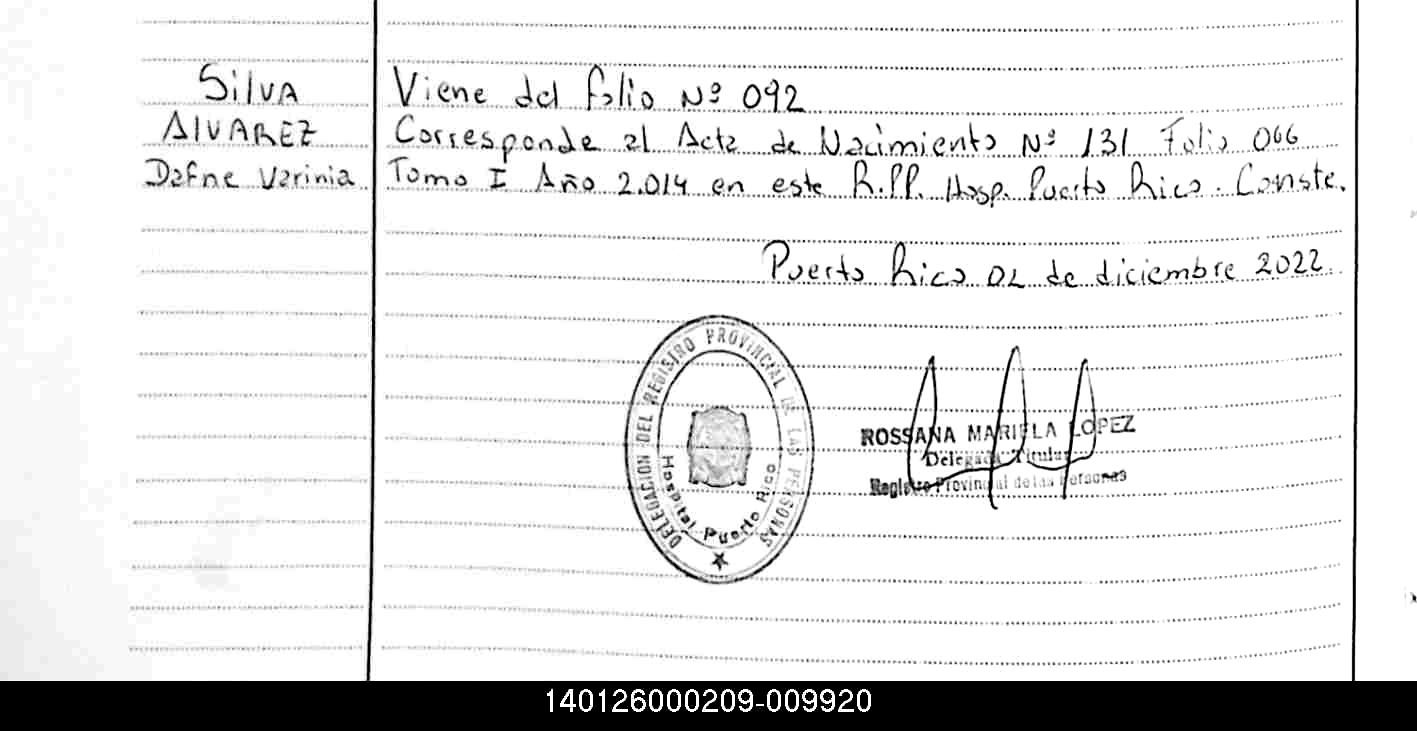 Silva
Alvarez
Dafne Varinia
Viene del folio Nº 092
Corresponde al Acta de Nacimiento Nº 131 Folio 066
Tomo I Año 2.014 en este R.PP. Hosp. Puerto Rico. Conste.
Puerto Rico 02 de diciembre 2022
DELEGACION DEL REGISTRO PROVINCIAL DE LAS PERSONAS
Hospital Puerto Rico
ROSSANA MARIELA LOPEZ
Delegada Titular
Registro Provincial de las Personas
140126000209-009920